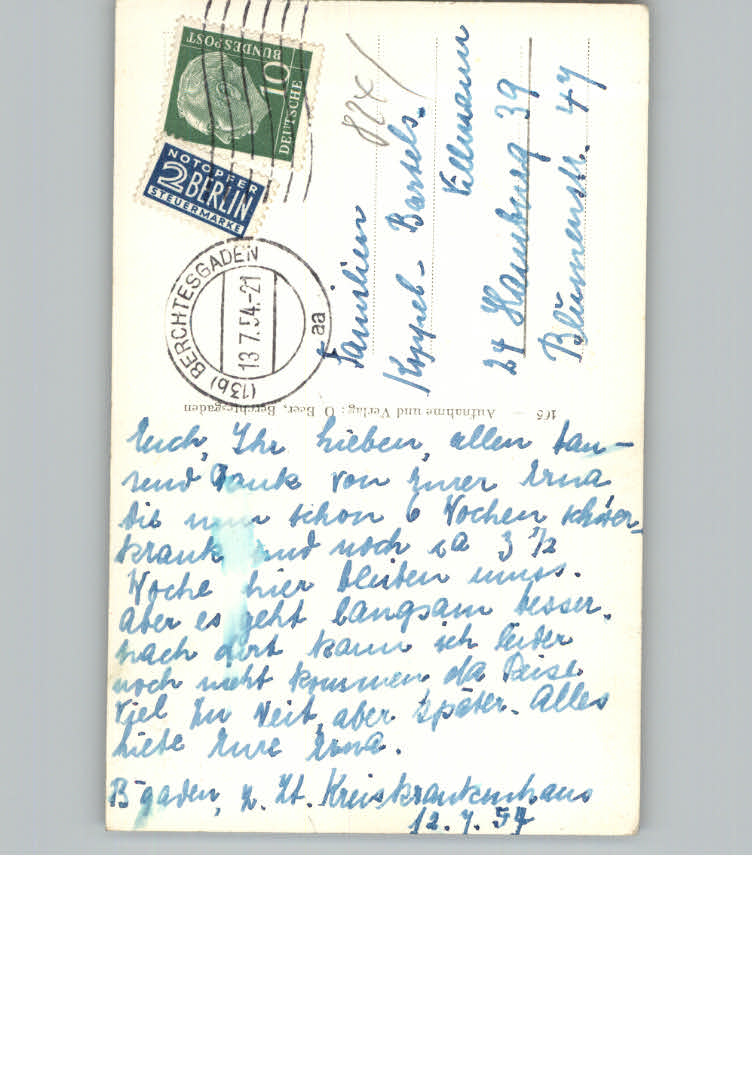 DEUTSCHE
BUNDESPOST
10
NOTOPFER
2 BERLIN
STEUERMARKE
(13b) BERCHTESGADEN
13.7.54.-21
aa
Familien
Koppel- Bartels.
Killmann
24 Hamburg 39
Blumenstr. 47
105 — Aufnahme und Verlag: O. Beer, Berchtesgaden
Euch, Ihr Lieben, allen tau-
send Dank von Eurer Erna
die nun schon 6 Wochen schwer-
krank und noch ca 3 1/2
Woche hier bleiben muss.
aber es geht langsam besser.
nach dort kann ich leider
noch nicht kommen da Reise
viel zu weit, aber später. Alles
Liebe Eure Erna.
B'gaden, z. Zt. Kreiskrankenhaus
12.7.54